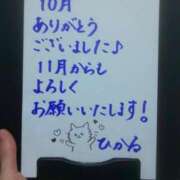 10月
ありがとう
ございました♪
11月からも
よろしく
お願いいたします!
ひかる